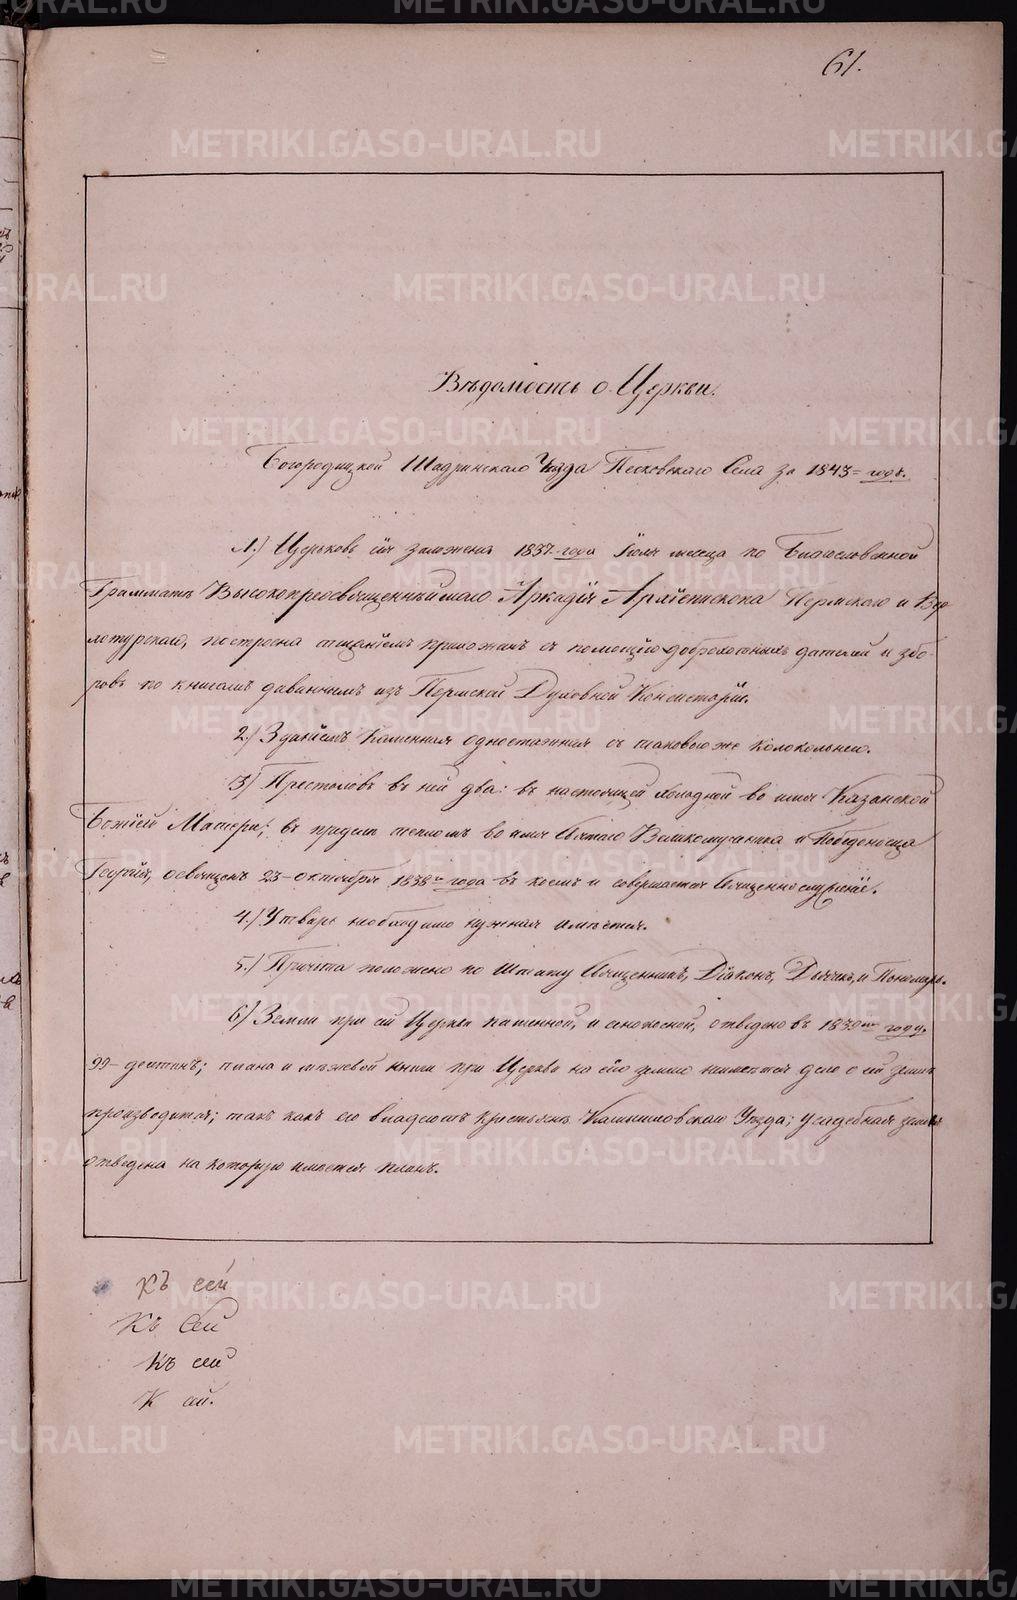 61.
Вѣдомость о Церкви.
Богородицкой Шадринскаго Уѣзда Песковскаго Села за 1843= годъ.
1.) Церковь сія заложена 1837-года Іюля месеца по Благословенной
Грамматѣ Высокопреосвященнѣйшаго Аркадія Архіепископа Пермскаго и Вер-
хотурскаго, построена тщаніемъ прихожанъ съ помощію доброхотныхъ дателей и збо-
ровъ по книгамъ даваннымъ изъ Пермской Духовной Консисторіи.
2.) Зданіемъ Каменная одноэтажная съ таковою же колокольнею.
3) Престоловъ въ ней два: въ настоящей холодной во имя Казанской
Божіей Матери, въ придѣлѣ тепломъ во имя Святаго Великомученика и Победеносца
Георгія, освященъ 23-октября 1838го года въ коемъ и совершается Священнослуженіе.
4.) Утварью необходимо нужная имѣется.
5.) Причта положено по Штату Священникъ, Діаконъ, Дьячекъ, и Пономарь.
6) Земли при сей Церкви пашенной, и сенокосной, отведено въ 1830мъ году.
99-десятинъ; плана и межевой книги при Церкви на сію землю неимѣется дело о сей земли
производится; такъ какъ ею владеютъ крестьяне Камышловскаго Уѣзда; усадебная земля
отведена на которую имеется планъ.
Къ сей
Къ Сей
Къ сей
К сей.
METRIKI.GASO-URAL.RU